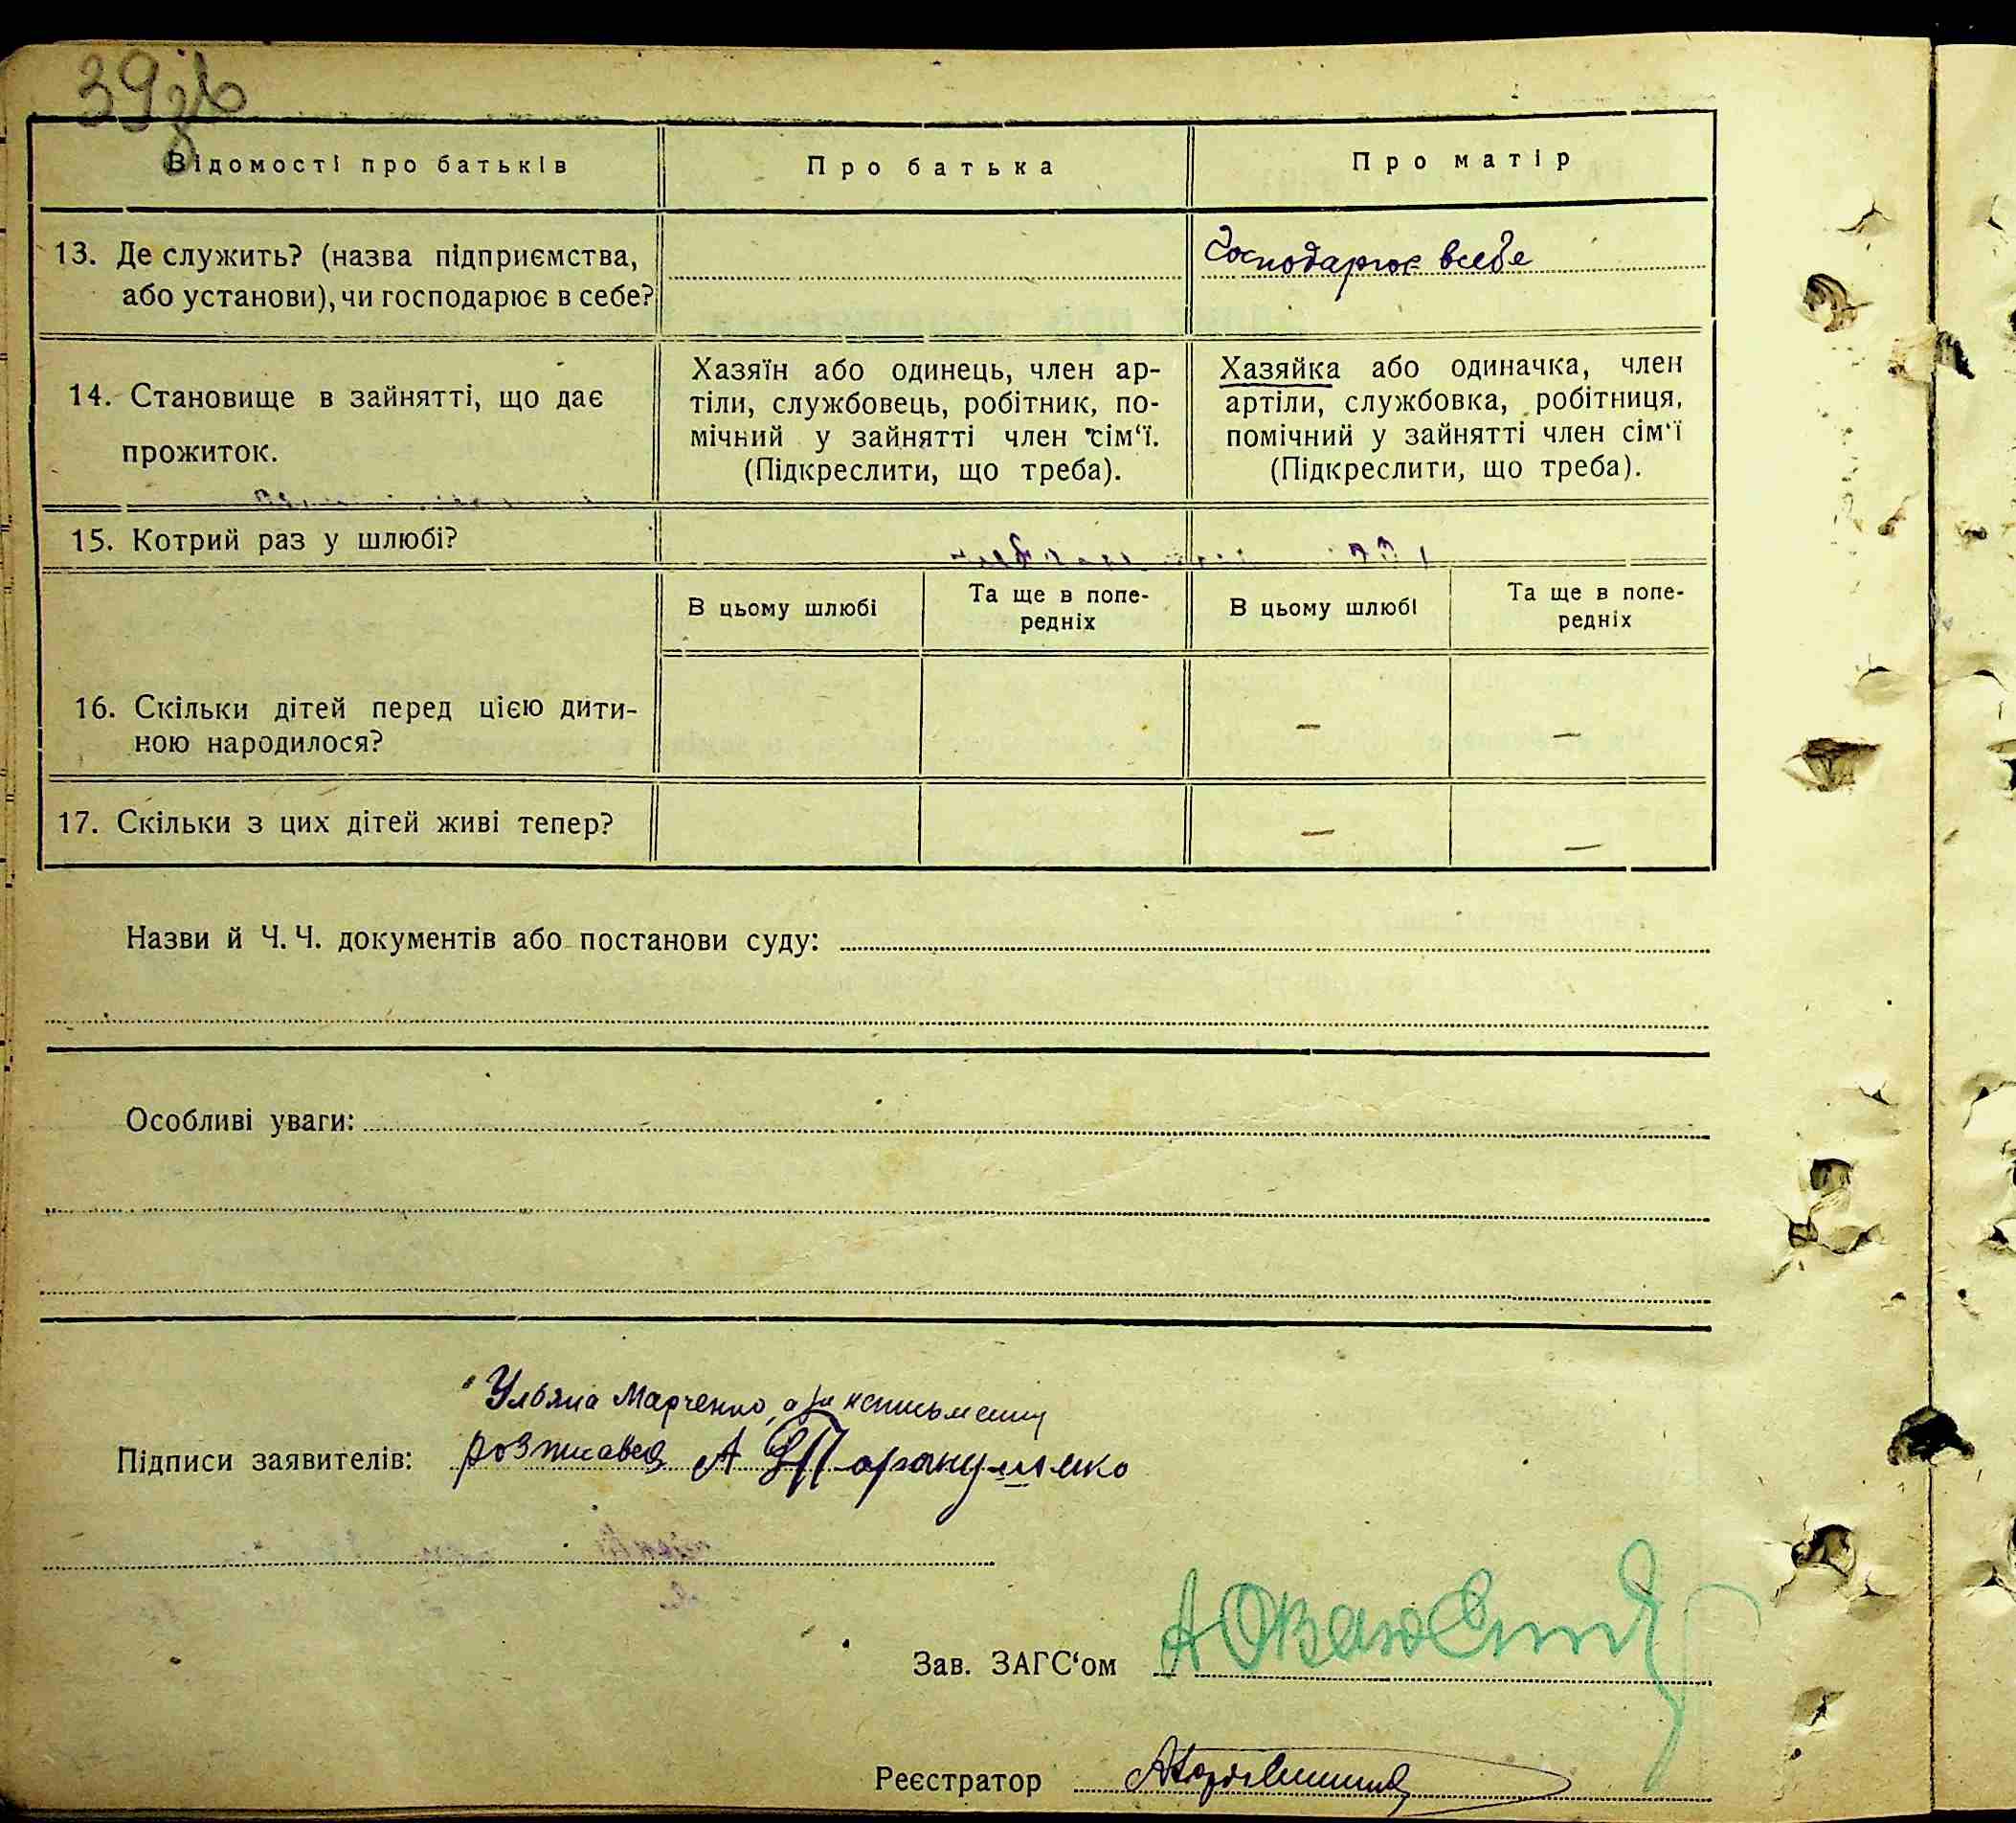 39зв
Відомості про батьків
Про батька
Про матір
13. Де служить? (назва підприємства,
або установи), чи господарює в себе?
Господарює в себе
14. Становище в зайнятті, що дає
прожиток.
Хазяїн або одинець, член ар-
тіли, службовець, робітник, по-
мічний у зайнятті член сім'ї.
(Підкреслити, що треба).
Хазяйка або одиначка, член
артіли, службовка, робітниця,
помічний у зайнятті член сім'ї
(Підкреслити, що треба).
15. Котрий раз у шлюбі?
В цьому шлюбі
Та ще в попе-
редніх
В цьому шлюбі
Та ще в попе-
редніх
16. Скільки дітей перед цією дити-
ною народилося?
— —
17. Скільки з цих дітей живі тепер?
— —
Назви й Ч. Ч. документів або постанови суду:
Особливі уваги:
Ульяна Марченко, а за неписьменну
Підписи заявителів: розписався А
Зав. ЗАГС'ом
Реєстратор